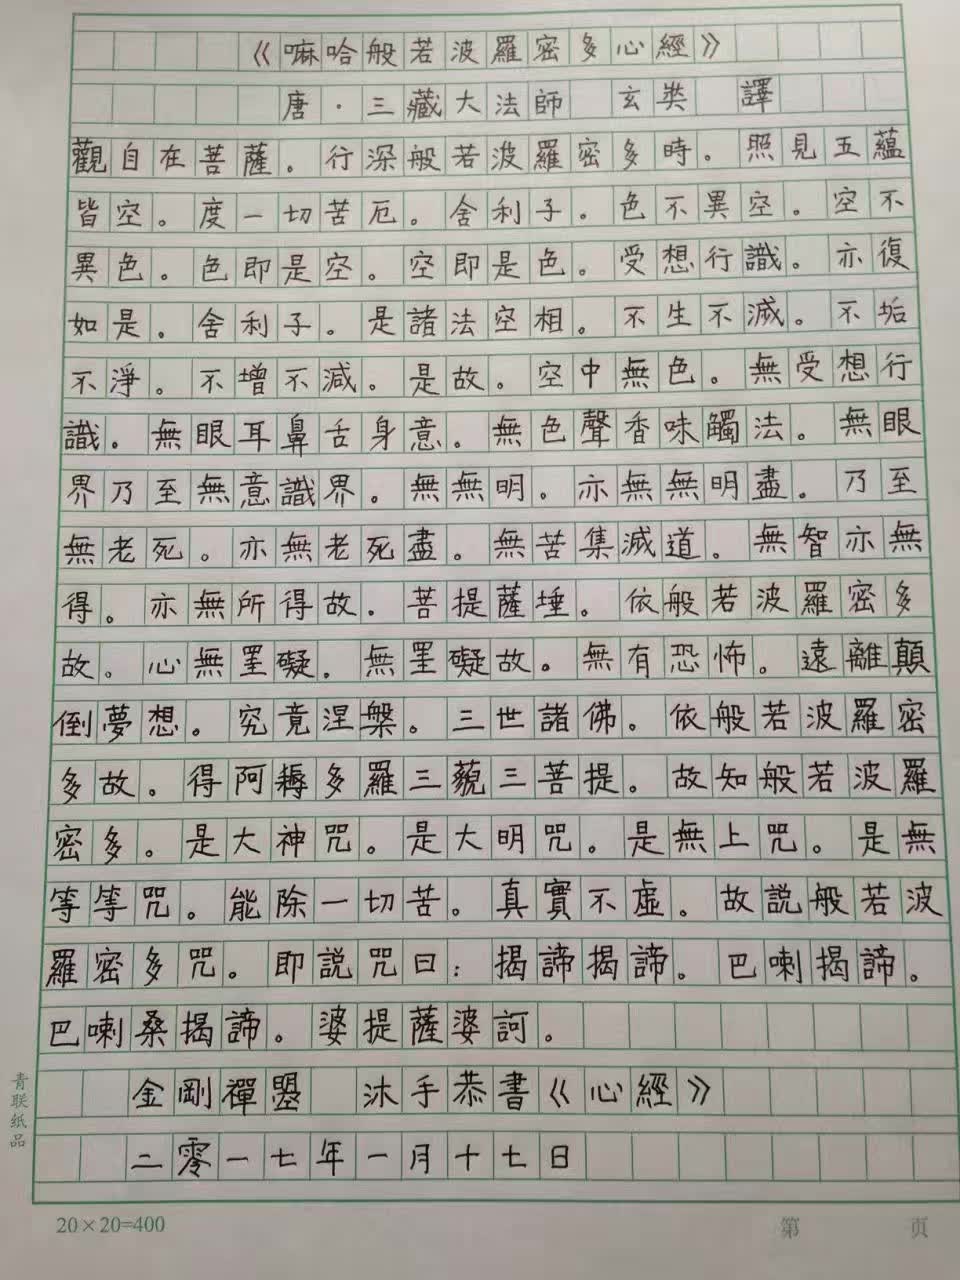 《嘛哈般若波羅密多心經》
唐·三藏大法師 玄奘 譯
觀自在菩薩。行深般若波羅密多時。照見五蘊
皆空。度一切苦厄。舍利子。色不異空。空不
異色。色即是空。空即是色。受想行識。亦復
如是。舍利子。是諸法空相。不生不滅。不垢
不淨。不增不減。是故。空中無色。無受想行
識。無眼耳鼻舌身意。無色聲香味觸法。無眼
界乃至無意識界。無無明。亦無無明盡。乃至
無老死。亦無老死盡。無苦集滅道。無智亦無
得。亦無所得故。菩提薩埵。依般若波羅密多
故。心無罣礙。無罣礙故。無有恐怖。遠離顛
倒夢想。究竟涅槃。三世諸佛。依般若波羅密
多故。得阿耨多羅三藐三菩提。故知般若波羅
密多。是大神咒。是大明咒。是無上咒。是無
等等咒。能除一切苦。真實不虛。故説般若波
羅密多咒。即説咒曰：揭諦揭諦。巴喇揭諦。
巴喇桑揭諦。婆提薩婆訶。
金剛禪曌 沐手恭書《心經》
二零一七年一月十七日
青联纸品
20×20=400 第 页